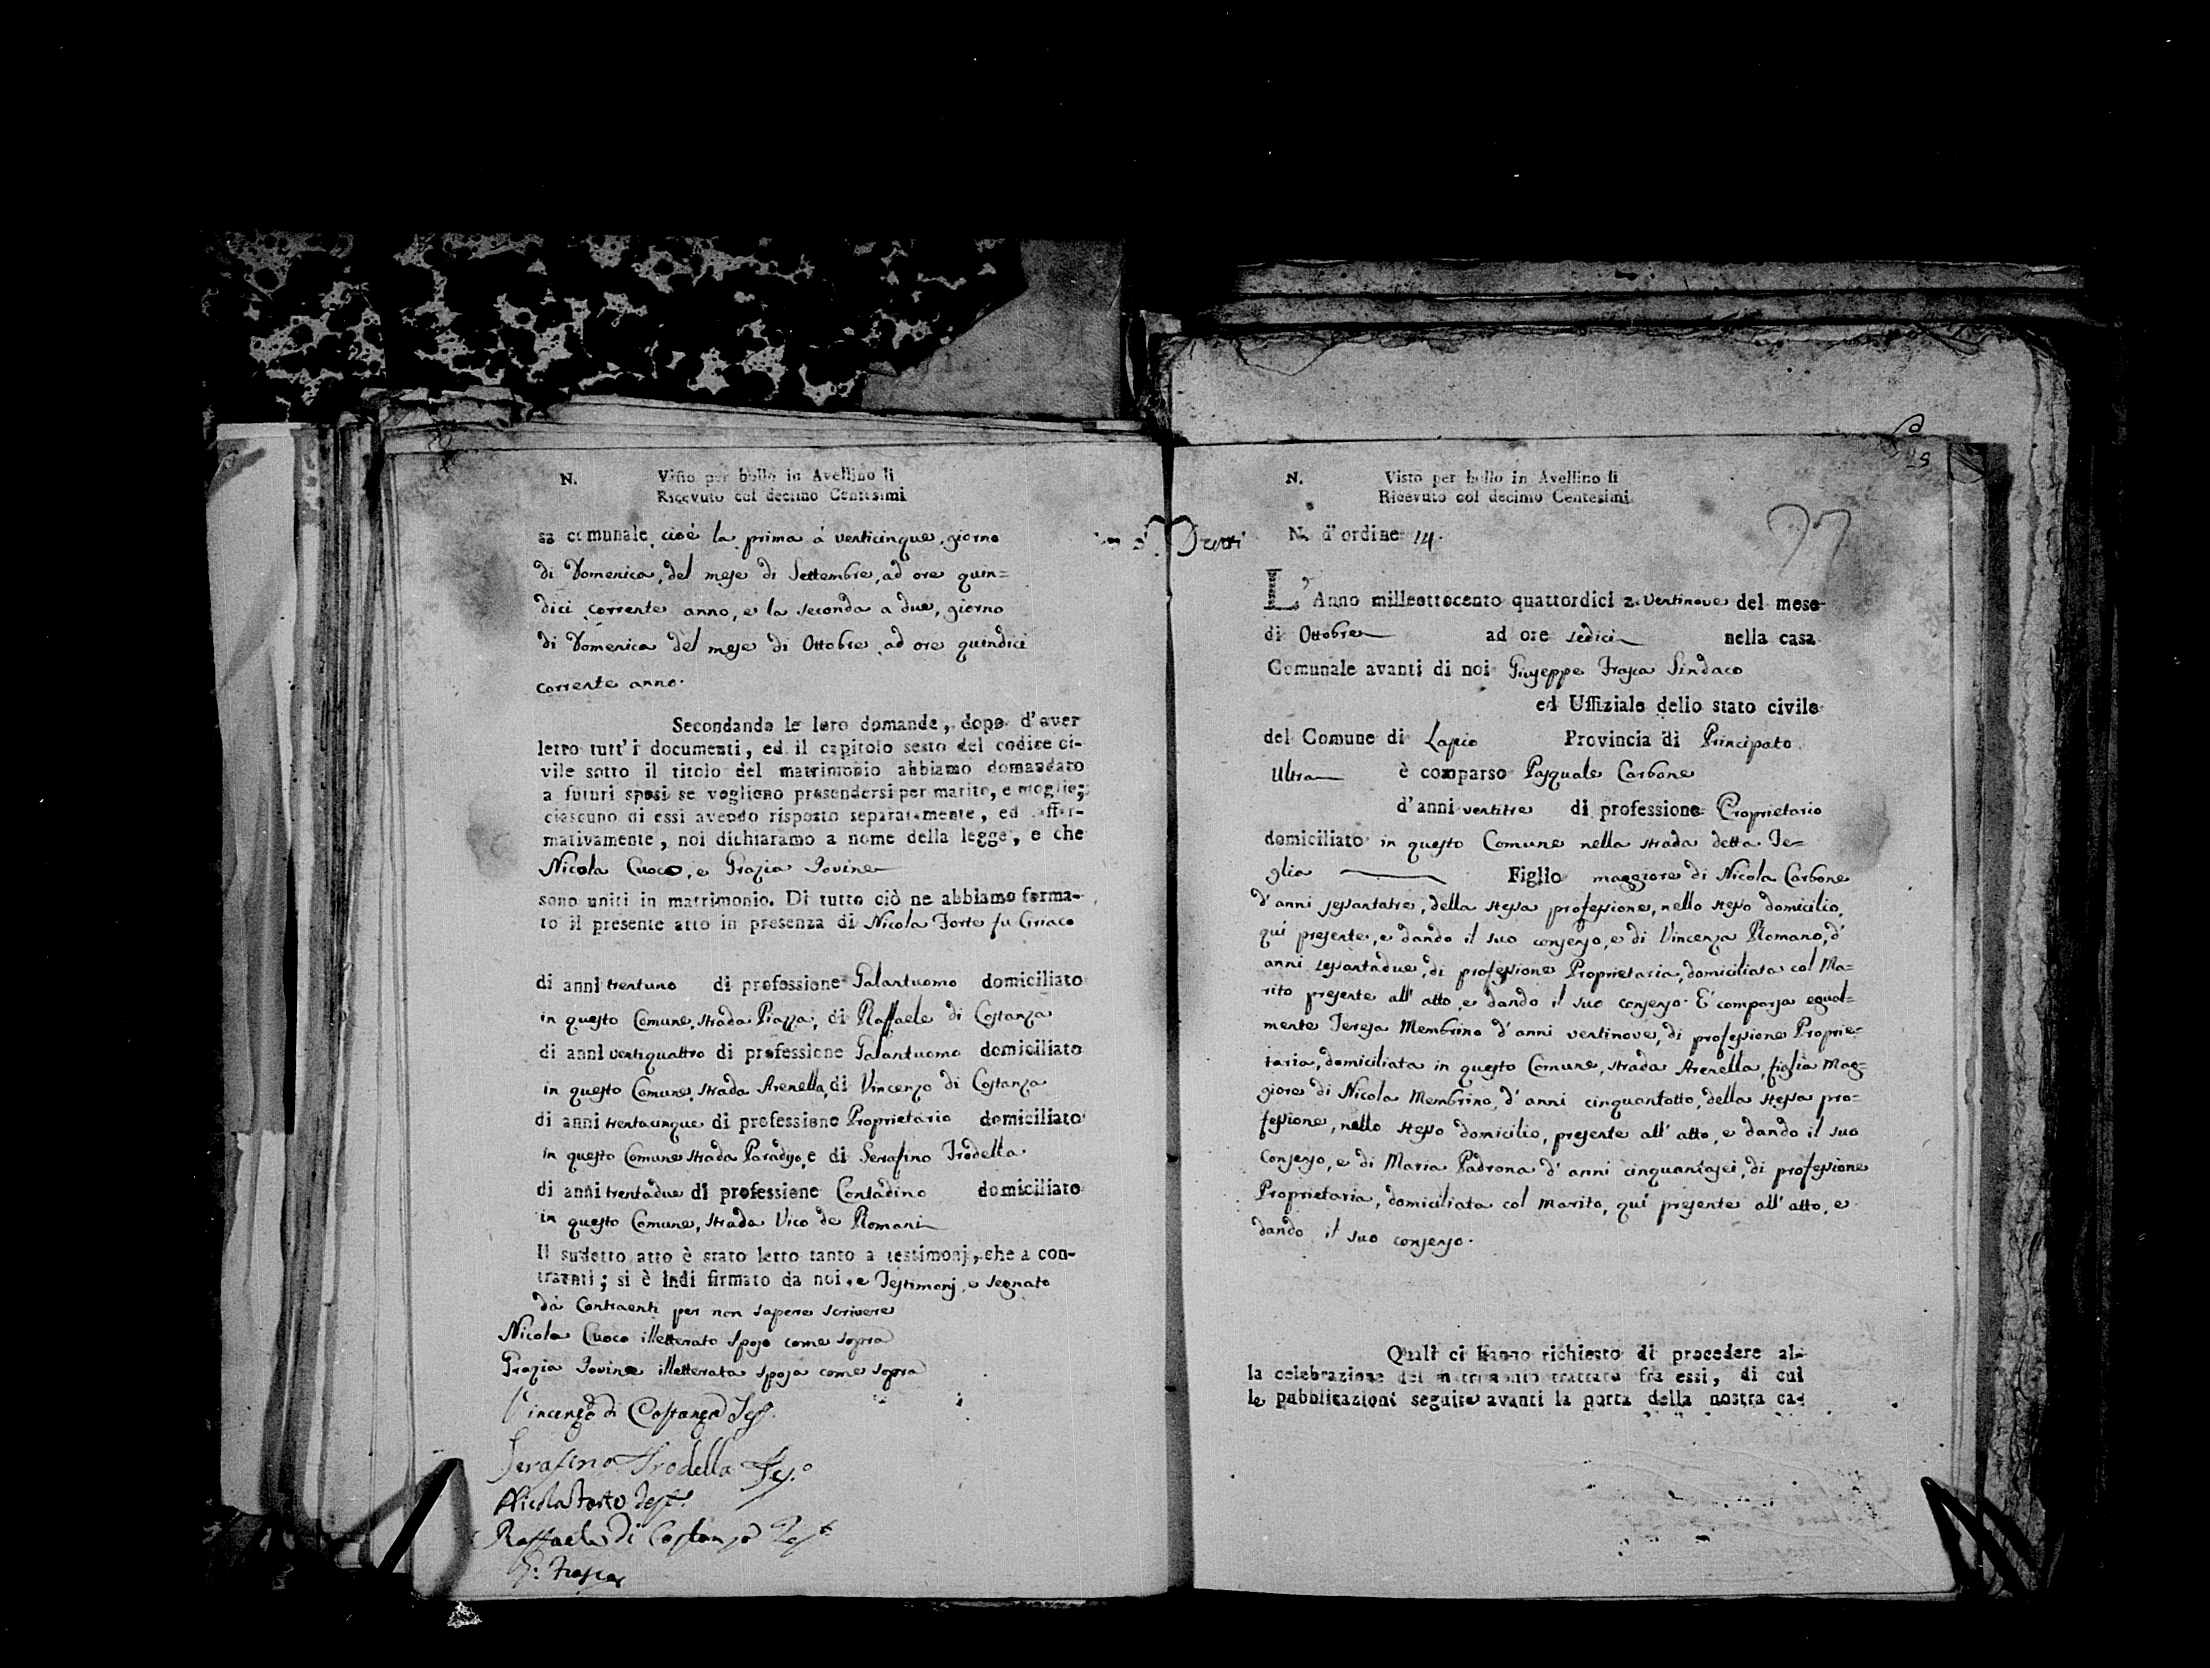 N. Visto per bollo in Avellino li
Ricevuto col decimo Centesimi
sa comunale cioè la prima à venticinque, giorno
di Domenica, del mese di Settembre, ad ore quin=
dici corrente anno, e la seconda a due, giorno
di Domenica del mese di Ottobre, ad ore quindici
corrente anno.
Secondando le loro domande, dopo d'aver
letto tutt'i documenti, ed il capitolo sesto del codice ci-
vile sotto il titolo del matrimonio abbiamo domandato
a futuri sposi se vogliono presendersi per marito, e moglie;
ciascuno di essi avendo risposto separatamente, ed affer-
mativamente, noi dichiaramo a nome della legge, e che
Nicola Cuoco, e Grazia Iovine
sono uniti in matrimonio. Di tutto ciò ne abbiamo forma-
to il presente atto in presenza di Nicola Forte fu Ciriaco
di anni trentuno di professione Galantuomo domiciliato
in questo Comune, strada Piazza, di Raffaele di Costanza
di anni ventiquattro di professione Galantuomo domiciliato
in questo Comune, strada Arenella, di Vincenzo di Costanza
di anni trentacinque di professione Proprietario domiciliato
in questo Comune strada Paradiso, e di Serafino Trodella
di anni trentadue di professione Contadino domiciliato
in questo Comune, strada Vico de Romani
Il sudetto atto è stato letto tanto a testimonj, che a con-
traenti; si è indi firmato da noi, e Testimonj, e segnato
da Contraenti per non sapere scrivere
Nicola Cuoco illetterato sposo come sopra
Grazia Iovine illetterata sposa come sopra
Vincenzo di Costanza Tes.
Serafino Trodella Tes.o
Nicola Forte Test.
Raffaele di Costanza Test.
G. Frasca
N. Visto per bollo in Avellino li
Ricevuto col decimo Centesimi
N. d'ordine 14.
L'Anno milleottocento quattordici a ventinove del mese
di Ottobre ad ore sedici nella casa
Comunale avanti di noi Giuseppe Frasca Sindaco
ed Uffiziale dello stato civile
del Comune di Lapio Provincia di Principato
Ultra è comparso Pasquale Carbone
d'anni ventitre di professione Proprietario
domiciliato in questo Comune nella strada detta Te=
glia Figlio maggiore di Nicola Carbone
d'anni sessantatre, della stessa professione, nello stesso domicilio,
qui presente, e dando il suo consenso, e di Vincenza Romano, d'
anni sessantadue, di professione Proprietaria, domiciliata col Ma=
rito presente all'atto, e dando il suo consenso. E' comparsa egual=
mente Teresa Membrino d'anni ventinove, di professione Proprie=
taria, domiciliata in questo Comune, strada Arenella, figlia mag=
giore di Nicola Membrino, d'anni cinquantotto, della stessa pro=
fessione, nello stesso domicilio, presente all'atto, e dando il suo
Consenso, e di Maria Padrona d'anni cinquantasei, di professione
Proprietaria, domiciliata col marito, qui presente all'atto, e
dando il suo consenso.
Quali ci hanno richiesto di procedere al-
la celebrazione del matrimonio trattato fra essi, di cui
le pubblicazioni seguite avanti la porta della nostra ca-